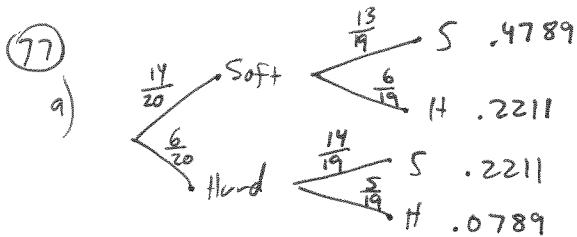 77
a)
14/20 Soft 13/19 S .4789
6/19 H .2211
6/20 Hard 14/19 S .2211
5/19 H .0789